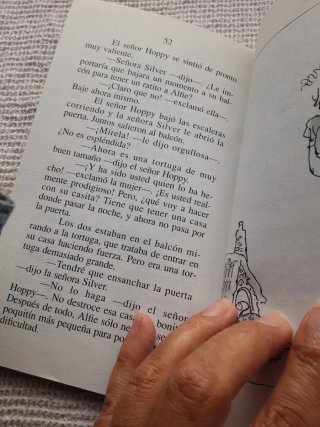 52
El señor Hoppy se sintió de pronto
muy valiente.
—Señora Silver —dijo—. ¿Le im-
portaría que bajara un momento a su bal-
cón para tener un ratito a Alfie?
—¡Claro que no! —exclamó ella—.
Baje ahora mismo.
El señor Hoppy bajó las escaleras
corriendo y la señora Silver le abrió la
puerta. Juntos salieron al balcón.
—¡Mírela! —le dijo orgullosa—.
¿No es espléndida?
—Ahora es una tortuga de muy
buen tamaño —dijo el señor Hoppy.
—¡Y ha sido usted quien lo ha he-
cho! —exclamó la mujer—. ¡Es usted real-
mente prodigioso! Pero, ¿qué voy a hacer
con su casita? Tiene que tener una casa
donde pasar la noche, y ahora no pasa por
la puerta.
Los dos estaban en el balcón mi-
rando a la tortuga, que trataba de entrar en
su casa haciendo fuerza. Pero era una tor-
tuga demasiado grande.
—Tendré que ensanchar la puerta
—dijo la señora Silver.
—No lo haga —dijo el señor
Hoppy—. No destroce esa casita
Después de todo, Alfie sólo
poquitín más pequeña para po
dificultad.